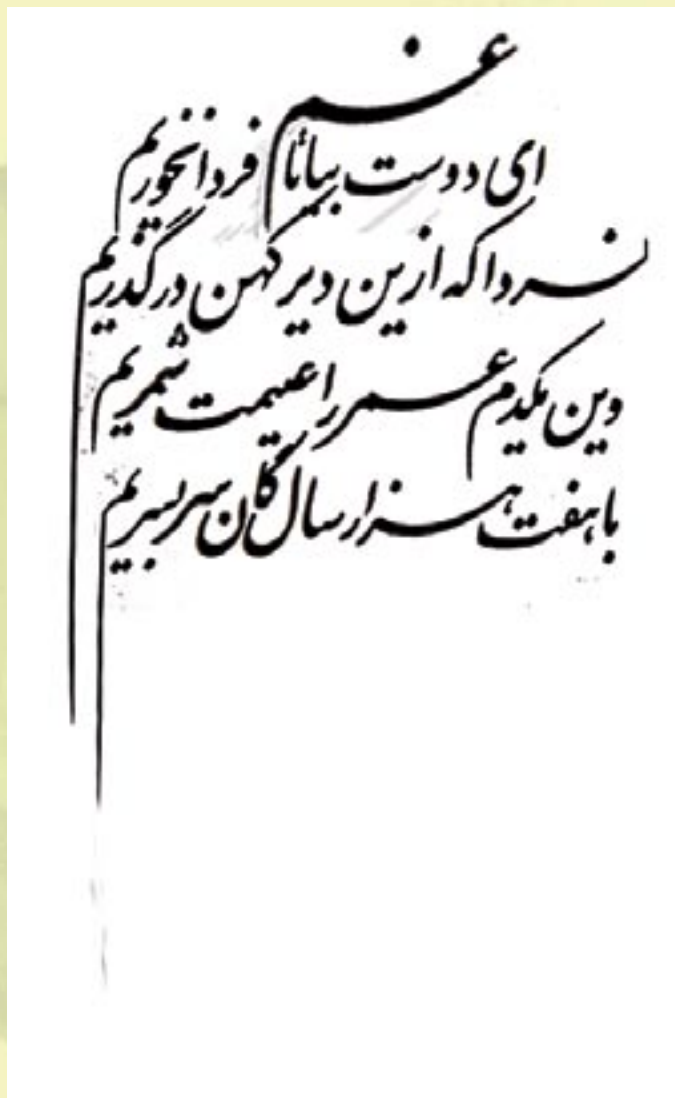 ای دوست بیا تا غم فردا نخوریم
فردا که ازین دیر کهن درگذریم
وین یکدم عمر را غنیمت شمریم
با هفت هزار سالگان سر بسریم